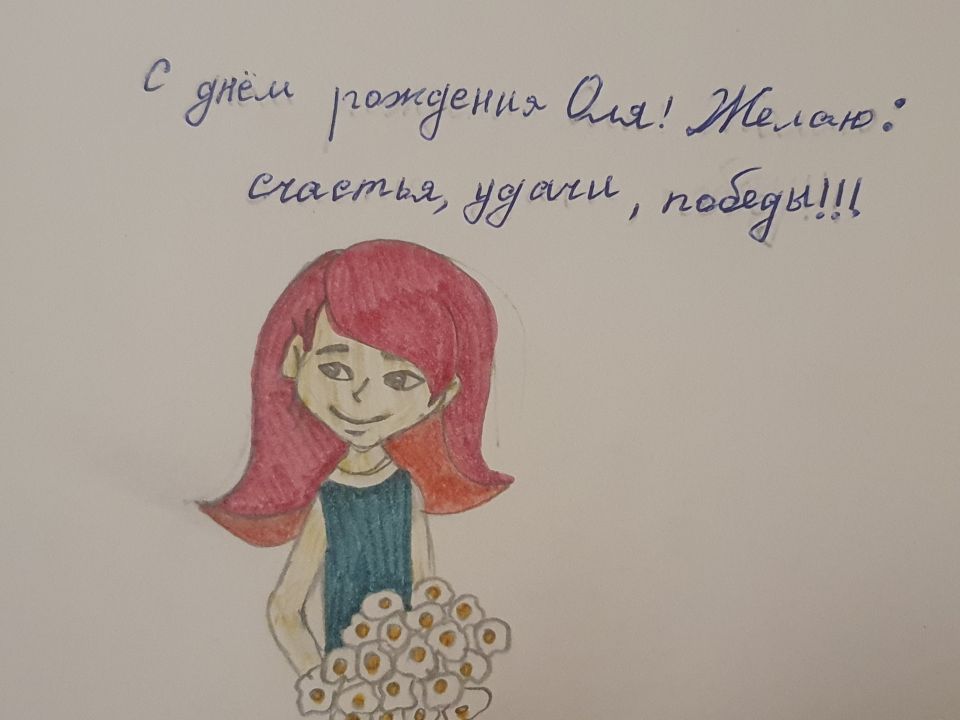 С днём рождения Оля! Желаю:
счастья, удачи, победы!!!